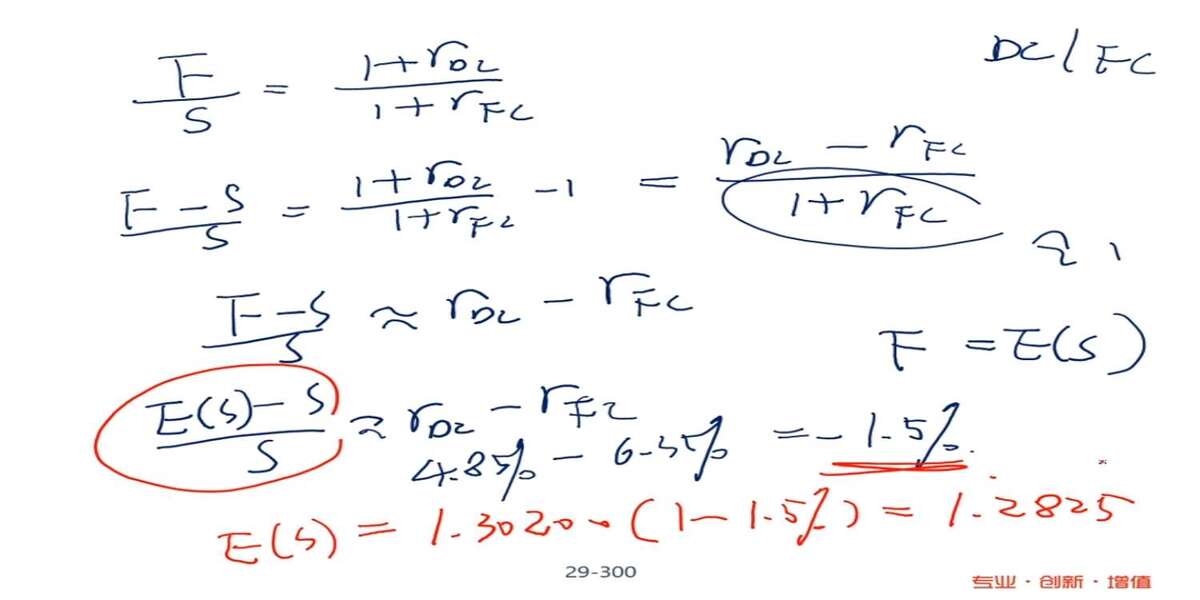 DC / FC
F/S = (1 + r_DC)/(1 + r_FC)
(F - S)/S = (1 + r_DC)/(1 + r_FC) - 1 = (r_DC - r_FC)/(1 + r_FC)
≈ 1
(F - S)/S ≈ r_DC - r_FC
F = E(S)
(E(S) - S)/S ≈ r_DC - r_FC
4.85% - 6.35% = -1.5%
E(S) = 1.3020 · (1 - 1.5%) = 1.2825
29-300
专业·创新·增值